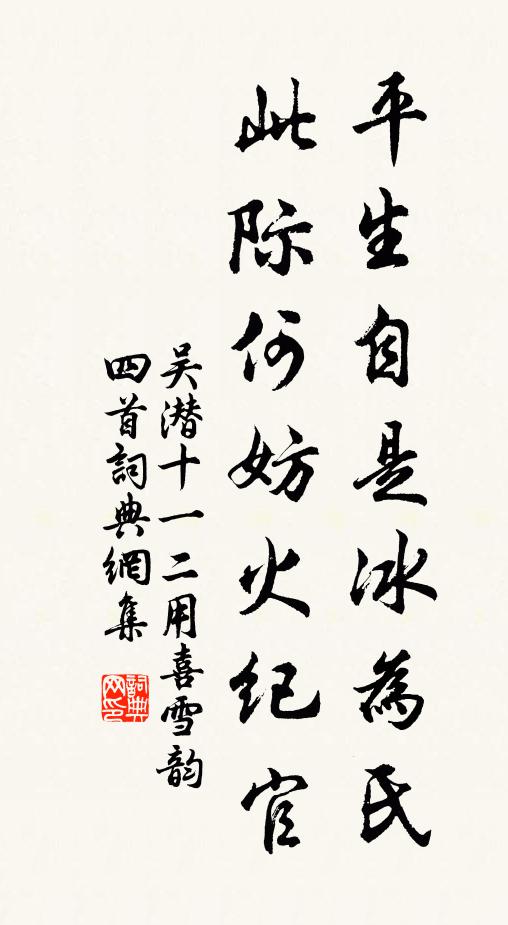 平生自是冰為氏
此际何妨火纪官
吴潜十一二用喜雪韵
四首詞典網集
詞典网印